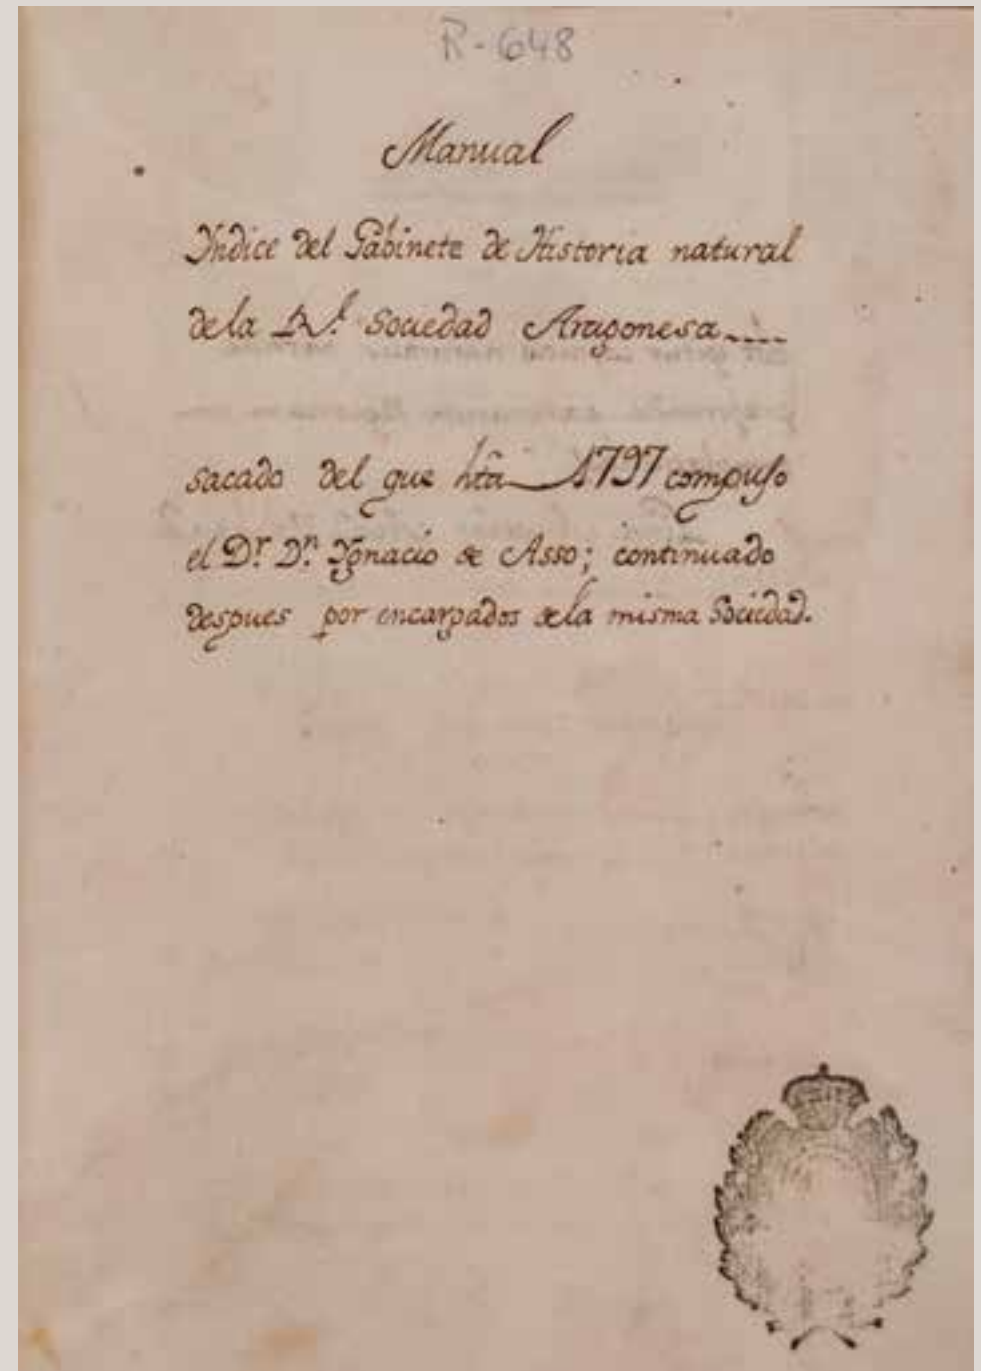 R-648
Manual
Yndice del Gabinete de Historia natural
de la Rl. Sociedad Aragonesa....
sacado del que hta 1797 compuso
el Dr. Dn. Ygnacio de Asso; continuado
despues por encargados de la misma Sociedad.